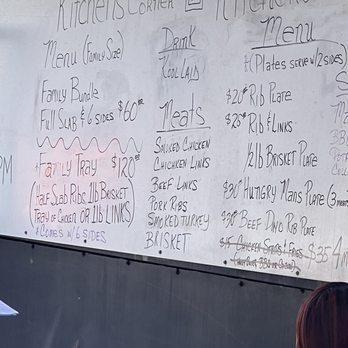 Kitchens Corner
Menu (Family Size)
Family Bundle
Full Slab & 6 sides $60
Family Tray $120
(Half Slab Ribs 1lb Brisket
Tray of Chicken or 1lb Links)
* Comes w/ 6 sides
PM
Drink
Kool Laid
Meats
Chicken Links
Beef Links
Pork Ribs
Smoked Turkey
Brisket
Menu
(Plates serve w/ 2 sides)
$20 Rib Plate
Rib & Links
1/2lb Brisket Plate
$30 Hungry Mans Plate (3 m
$30 Beef Dino Rib Plate
$35 4 m